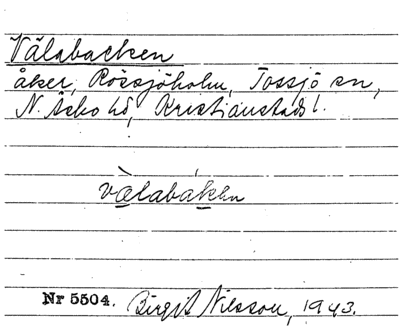 Välabacken
åker, Rössjöholm, Tossjö sn,
N. Åsbo hd, Kristianstads l.
vä̀labákkən
Nr 5504. Birgit Nilsson, 1943.